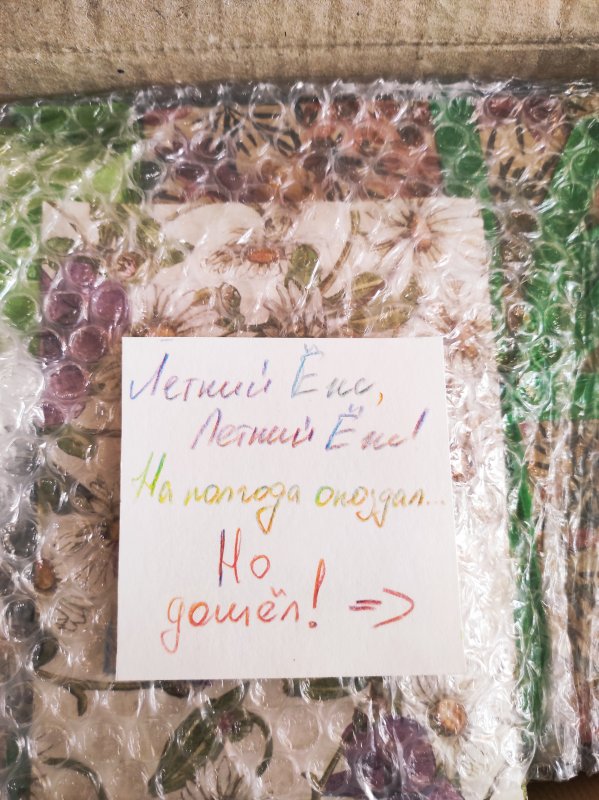 Летний Ёкс,
Летний Ёкс!
На полгода опоздал...
Но
дошёл! =>